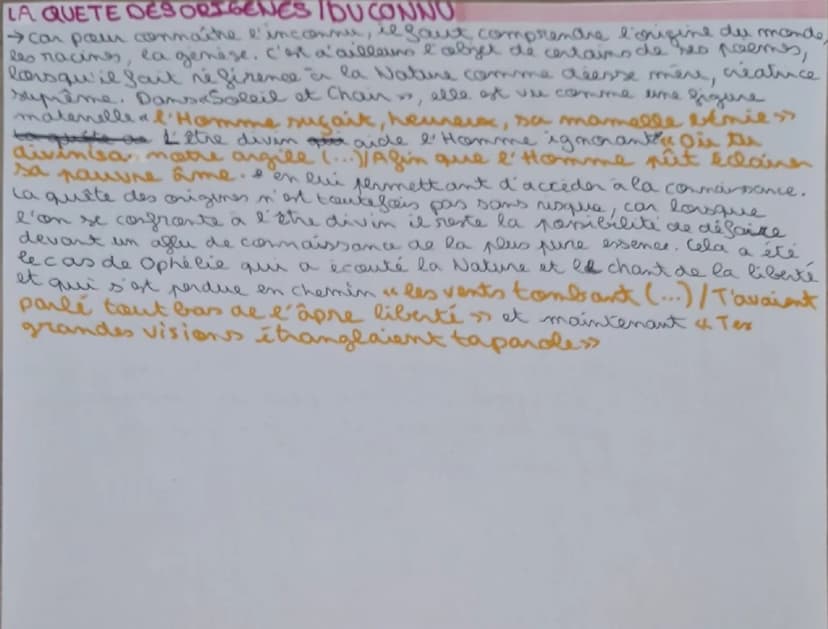 LA QUETE DES ORIGENES / DU CONNU
→ car pour connaître l'inconnu, il faut comprendre l'origine du monde,
les racines, la genèse. C'est d'ailleurs l'objet de certains de ses poèmes,
lorsqu'il fait référence à la Nature comme déesse mère, créatrice
suprême. Dans « Soleil et Chair », elle est vu comme une figure
maternelle « l'Homme suçait, heureux, sa mamelle bénie »
L'être divin aide l'Homme ignorant « Où tu
divinisas notre argile (...) / Afin que l'Homme pût éclairer
sa pauvre âme. » en lui permettant d'accéder à la connaissance.
La quête des origines n'est toutefois pas sans risque, car lorsque
l'on se confronte à l'être divin il reste la possibilité de défaire
devant un aflu de connaissance de la plus pure essence. Cela a été
le cas de Ophélie qui a écouté la Nature et le chant de la liberté
et qui s'est perdue en chemin « les vents tombant (...) / T'avaient
parlé tout bas de l'âpre liberté » et maintenant « Tes
grandes visions étranglaient ta parole »